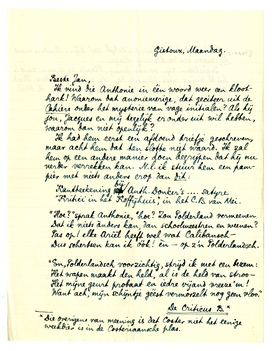 Gistoux, Maandag.
Beste Jan,
Ik vind die Anthonie in één woord weer een kloot-
hark! Waarom dat anoniempje, dat gezitger uit de
Cahiers onder het mysterie van vage initialen? Als hij
jou, Jacques en mij tegelijk er onder uit wil hebben,
waarom dan niet openlijk?
Ik had hem eerst een afdoend briefje geschreven,
maar acht hem dat ten slotte niet waard. Ik zal
hem op een andere manier doen begrijpen dat hij nu
verder verrekken kan. N.l. ik stuur hem een pam-
pier met niets anders erop dan dit:
Kanttekening bij Anth. Donker's .... satyre
"Kritici in het Koffijhuis", in het C.B. van Mei.
"Hoe?" sprak Anthonie, "hoe? Zou Polderland vermeenen
Dat ik niets anders kan dan schoolmeestren en weenen?
Pas op! elke Ariël heeft wel wat Calibansch –
Dus schertsen kan ik óók! én – op z'n Polderlandsch.
"En, Polderlandsch voorzichtig, strijd ik met een bezem:
Het wapen maakt den held, al is de held van stroo –
Het mijne geurt probaat en iedre vijand vreeze 'm!
Want ach, mijn schijntje geest vermorzelt nog geen vloo."
De Criticus B.*
*Die overigens van meening is dat Coster niet het eenige
weekdier is in de Costeriaansche plas.